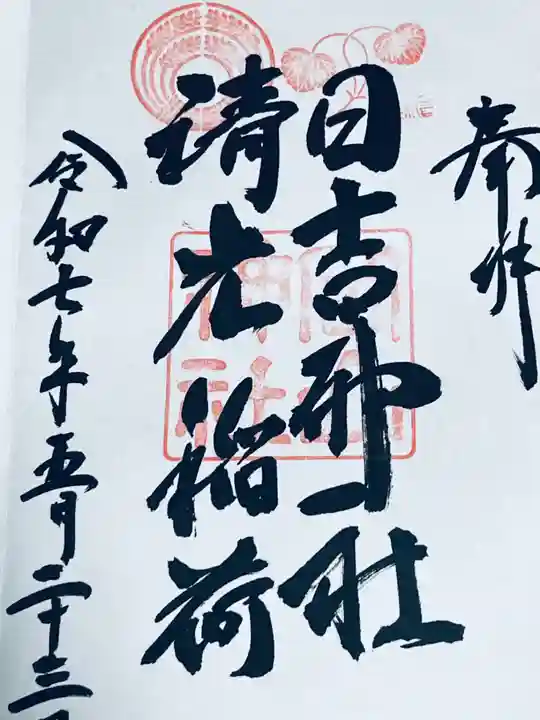 奉拝
日吉神社
請光稲荷
令和七年五月二十三日